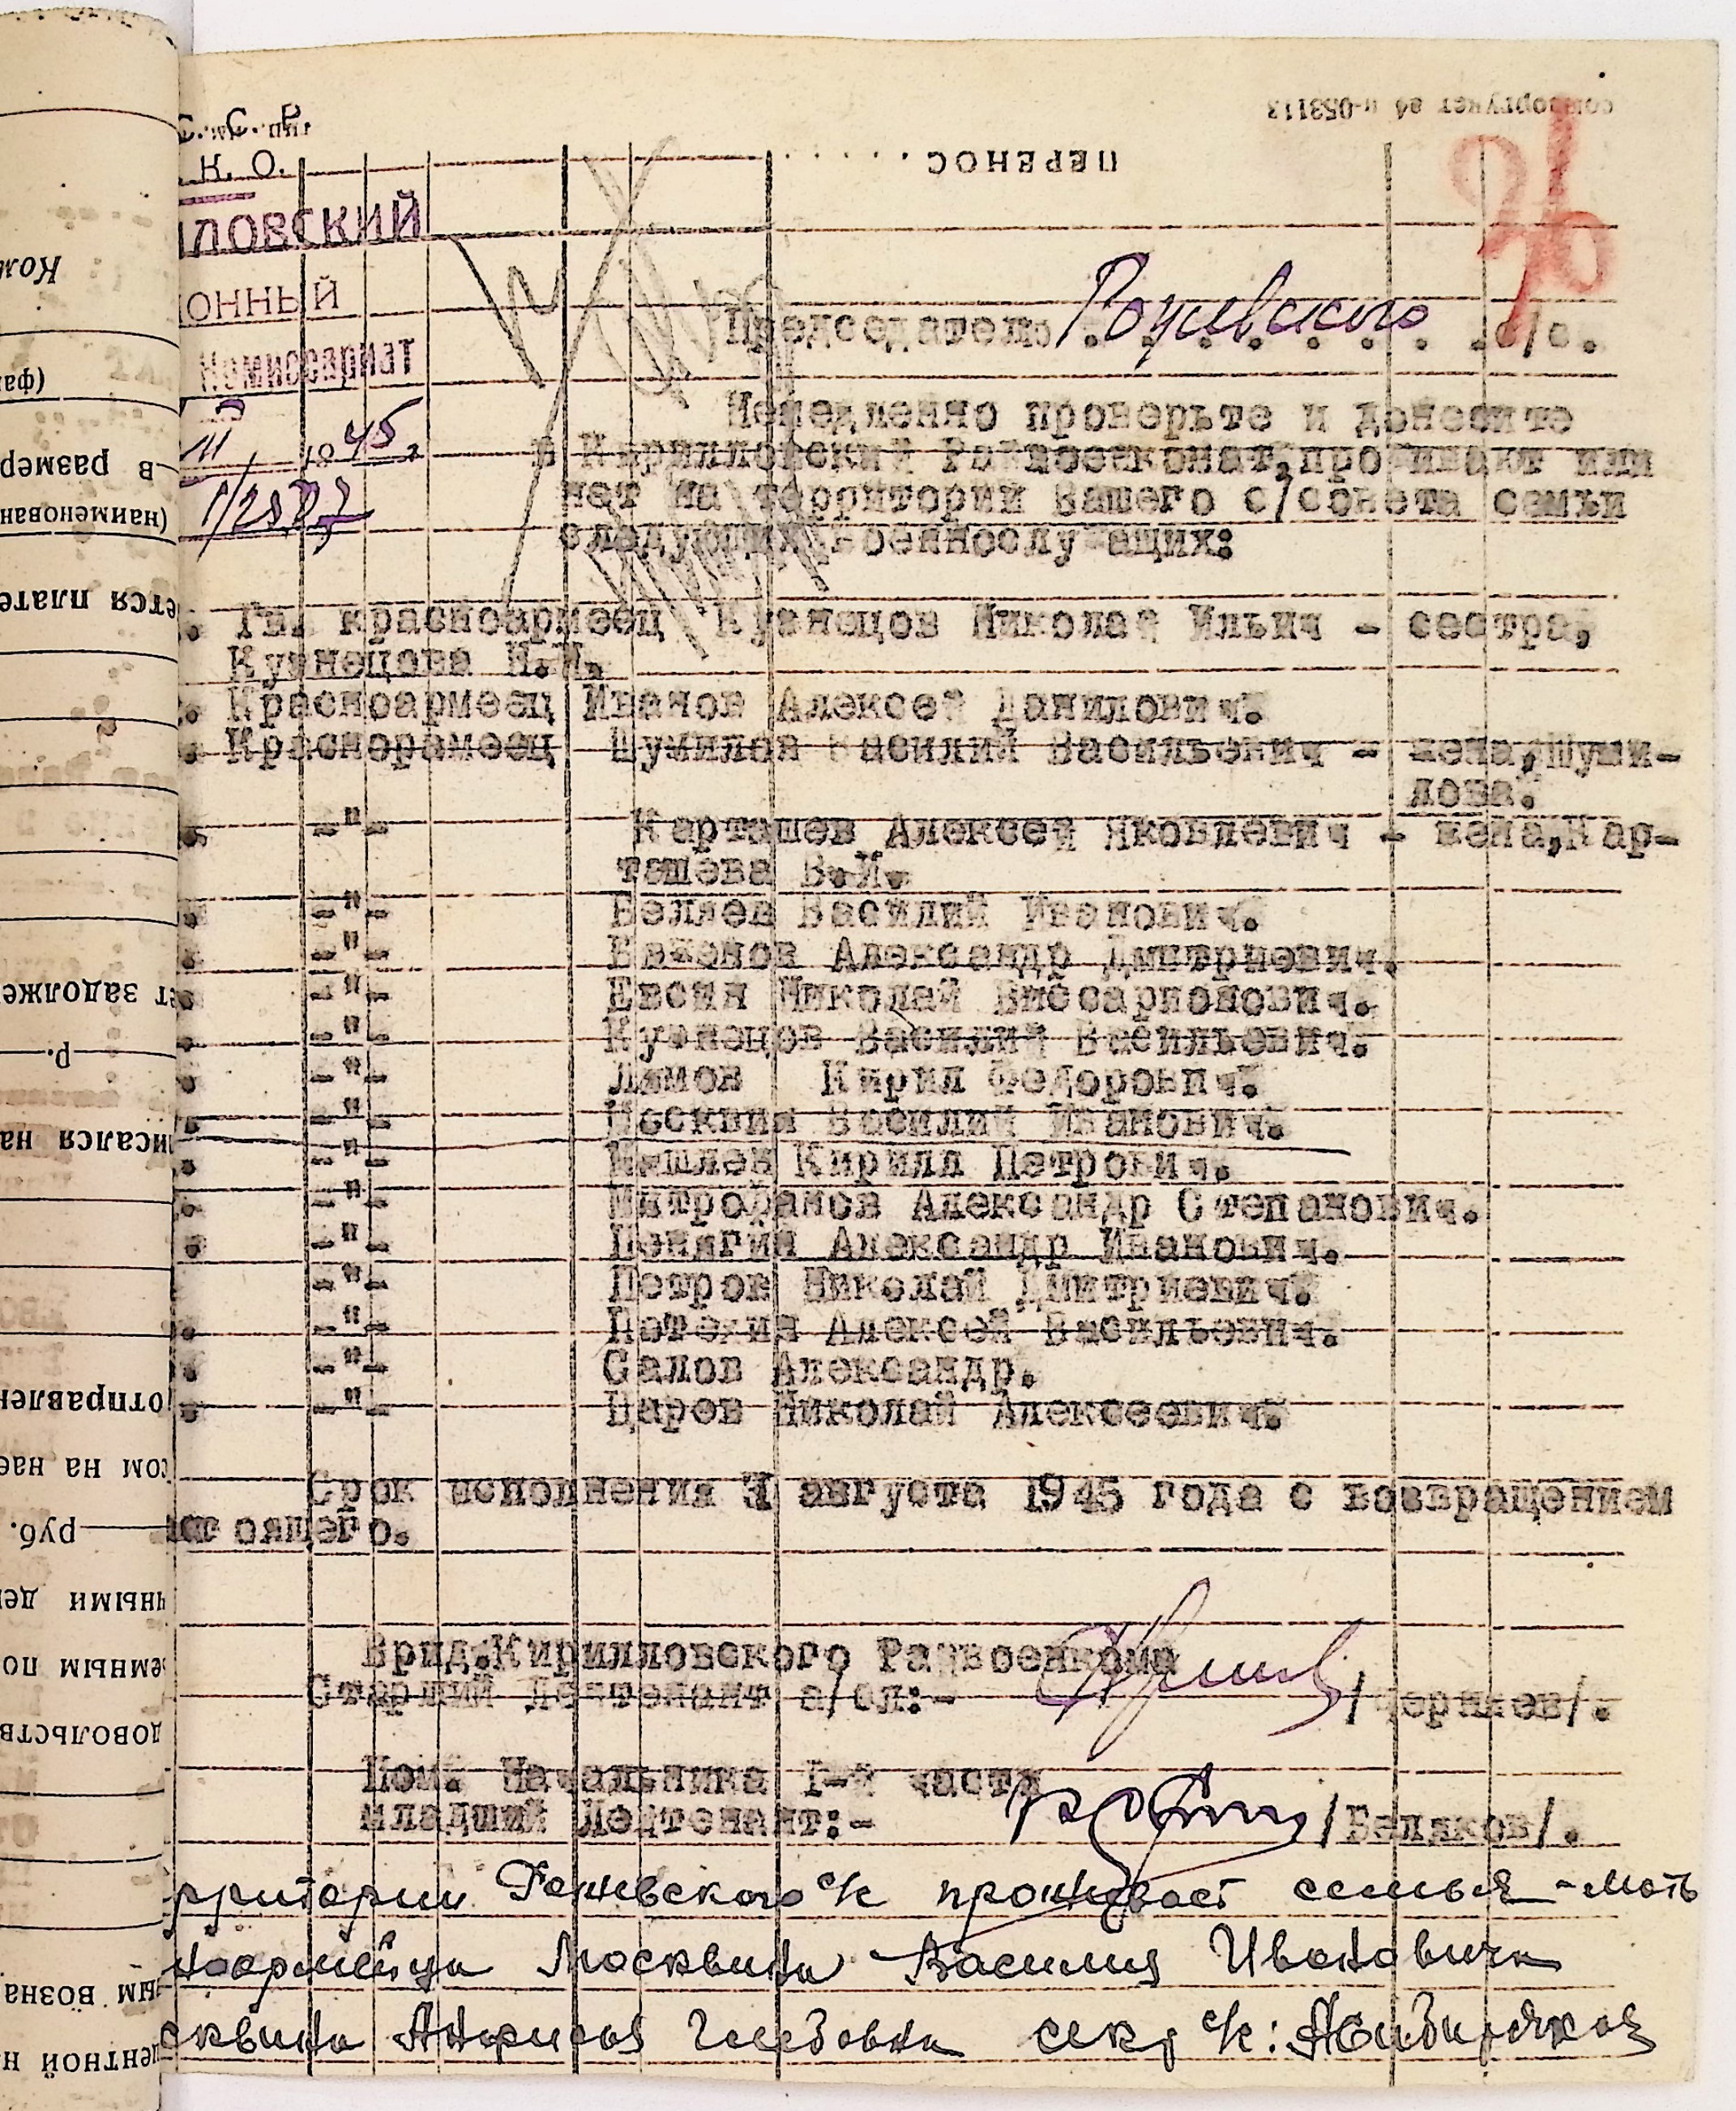 С.С.Р.
Н. К. О.
ЛОВСКИЙ
ОННЫЙ
Комиссариат
III 1945 г.
1/2577
союзоргучет
ПЕРЕНОС . . . . . .
26
Председателю . . . . . . . . с/с.
Немедленно проверьте и донесите
в Кирилловский Райвоенкомат, проживают или
нет на территории Вашего с/совета семьи
следующих военнослужащих:
. Гв. красноармеец Кузнецов Николай Ильич - сестра,
Кузнецова
. Красноармеец Иванов Алексей Данилович.
. Краснорамеец Шумилов Василий Васильевич - жена, Шуми-
лова.
. -"- Карташев Алексей Яковлевич - жена, Кар-
ташева В.И.
. -"- Беляев Василий Иванович.
. -"- Баженов Александр Дмитриевич.
. -"- Евсин Николай Виссарионович.
. -"- Кузнецов Василий Васильевич.
. -"- Лямов Кирил Федорович.
. -"- Москвин Василий Иванович.
. -"- Кирилл Петрович.
. -"- Митрофанов Александр Степанович.
. -"- Пенягин Александр Иванович.
-"- Петров Николай Дмитриевич.
. -"- Алексей Васильевич.
. -"- Салов Александр.
. -"- Царов Николай Алексеевич.
Срок исполнения августа 1945 года с возвращением
оящего.
Врид.Кирилловского Райвоенкома
Старший Лейтенант а/сл:- /
Пом. Начальника 1-й части
младший Лейтенант:- /Беляков/.
рритории с/с проживает семья - мать
ноармейца Москвина Василия Ивановича
сквина секр с/с:
Ком
(фа
в размер
(наименован
ется плате
ет задолже
р.
исался на
отправлен
ом на нае
руб.
чными ден
емным по
довольств
ым возна
центной н